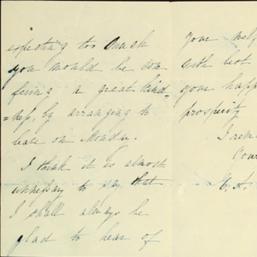 expecting too much
you would be con-
fering a great kind-
=ness, by arranging to
leave on Monday.
I think it is almost
unnecessary to say that
I shall always be
glad to hear of
your
with
your happ
prosperity
I
Your